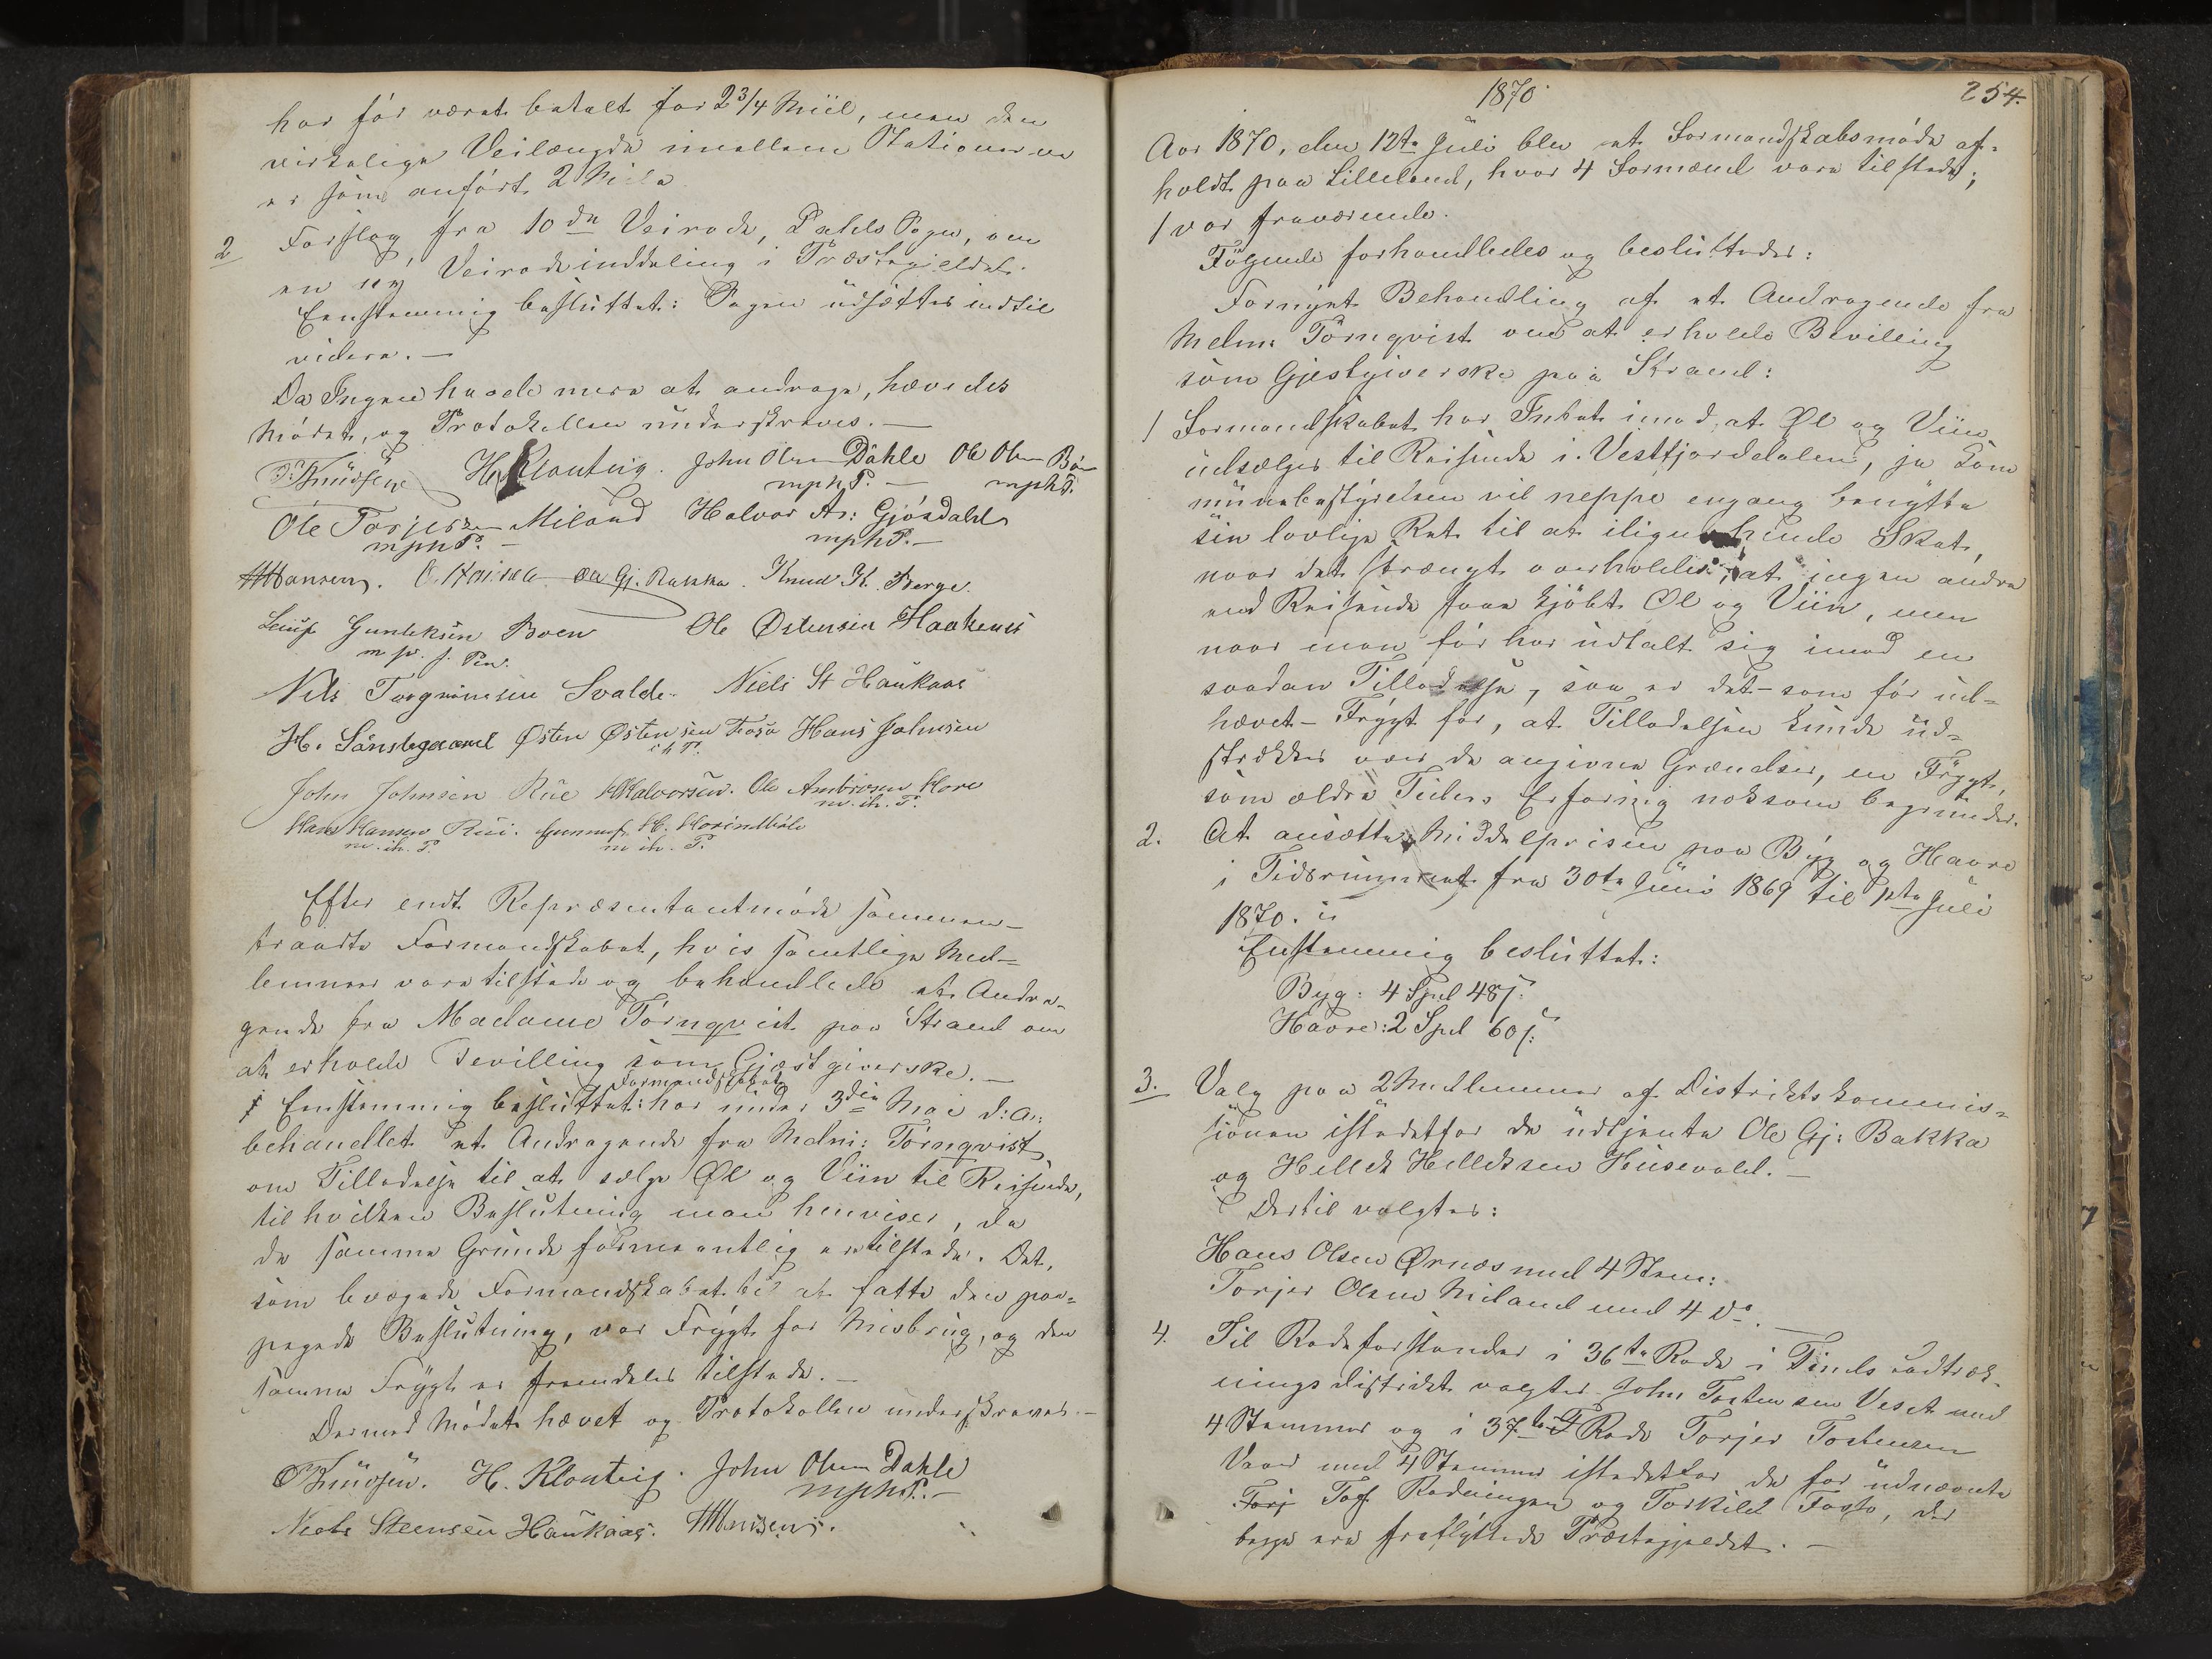 har før været betalt for 2 3/4 Miil, men den
virkelige Veilængde imellem Stationerne
er som anført 2 Mile
2 Forslag fra 10de Veirode, Dahls Sogn, om
en ny Veirodeinddeling i Præstegjeldet.
Eenstemmig besluttet: Sagen udsættes indtil
videre. —
Da Ingen havde mere at andrage, hævedes
Mødet, og Protokollen underskreves. —
Knudsen H. Klouteig. John Olsen Dahle Ole Olsen Böen
mphP. — mphP.
Ole Torjersen Miland Halvor As: Gjösdahl
mphP. — mphP. —
HHansen. Ole Gj. Bakka. Knud K. Berge.
Gunleksen Boen Ole Østensen Haakenes
m. p. f. Pen.
Nils Torgrimsen Svalde. Niels St Haukaas
H. Sanstegaard Østen Østensen Fosso Hans Johnsen
John Johnsen Rue HHalvorsen. Ole Ambrosen Hove
m. ih. P.
Hans Hansen Rui. Gunnuf H.
m. ih. P. m ih. P.
Efter endt Repræsentantmøde sammen-
traadte Formandskabet, hvis samtlige Med-
lemmer vare tilstede og behandlede et Andra-
gende fra Madame Törnqvist paa Strand om
at erholde Bevilling som Gjæstgiverske. —
Formandskabet
1 Eenstemmig besluttet: har under 3die Mai d: a:
behandlet et Andragende fra Mdm: Törnqvist
om Tilladelse til at sælge Øl og Viin til Reisende,
til hvilken Beslutning man henviser, da
de samme Grunde formeentlig er tilstede. Det,
som bevægede Formandskabet til at fatte den paa-
pegede Beslutning, var Frygt for Misbrug, og den
samme Frygt er fremdeles tilstede. —
Dermed Mødet hævet og Protokollen underskreves. —
Knudsen. H. Klouteig. John Olsen Dahle
mphP. —
Niels Steensen Haukaas. HHansens.
1870
254.
Aar 1870, den 12te Juli blev et Formandskabsmøde af-
holdt paa Lilleland, hvor 4 Formænd vare tilstede;
1 var fraværende.
Følgende forhandledes og besluttedes:
Fornyet Behandling af et Andragende fra
Mdm: Törnqvist om at erholde Bevilling
som Gjestgiverske paa Strand:
1 Formandskabet har Intet imod, at Øl og Viin
udsælges til Reisende i Vestfjorddalen, ja Kom
munebestyrelsen vil neppe engang benytte
sin lovlige Ret til at iligne hende Skat,
naar det strængt overholdes, at ingen andre
end Reisende faae kjøbt Øl og Viin, men
naar man før har udtalt sig imod en
saadan Tilladelse, saa er det – som før ud-
hævet – Frygt for, at Tilladelsen kunde ud-
strækkes over de angivne Grændser, en Frygt,
som ældre Tiders Erfaring noksom begrunder.
2. At ansætte Middelprisen paa Byg og Havre
i Tidsrummet fra 30te Juni 1869 til 1ste Juli
1870.
Enstemmig besluttet:
Byg: 4 Spd 48 ſ:
Havre: 2 Spd 60 ſ:
3. Valg paa 2 Medlemmer af Distriktskommis-
sionen istedetfor de udtjente Ole Gj: Bakka
og Hellek Helleksen Husevold. —
Dertil valgtes:
Hans Olsen Ørnes med 4 Stem:
Torjer Olsen Miland med 4 do. —
4. Til Rodeforstander i 36te Rode i Tinds Udtræk-
ningsdistrikt valgtes John Tostensen Veset med
4 Stemmer og i 37te Rode Torjer Tostensen
Vaaer med 4 Stemmer istedetfor de før udnævnte
Torj Tof og Torkild Fosso, der
begge ere fraflyttede Præstegjeldet. —